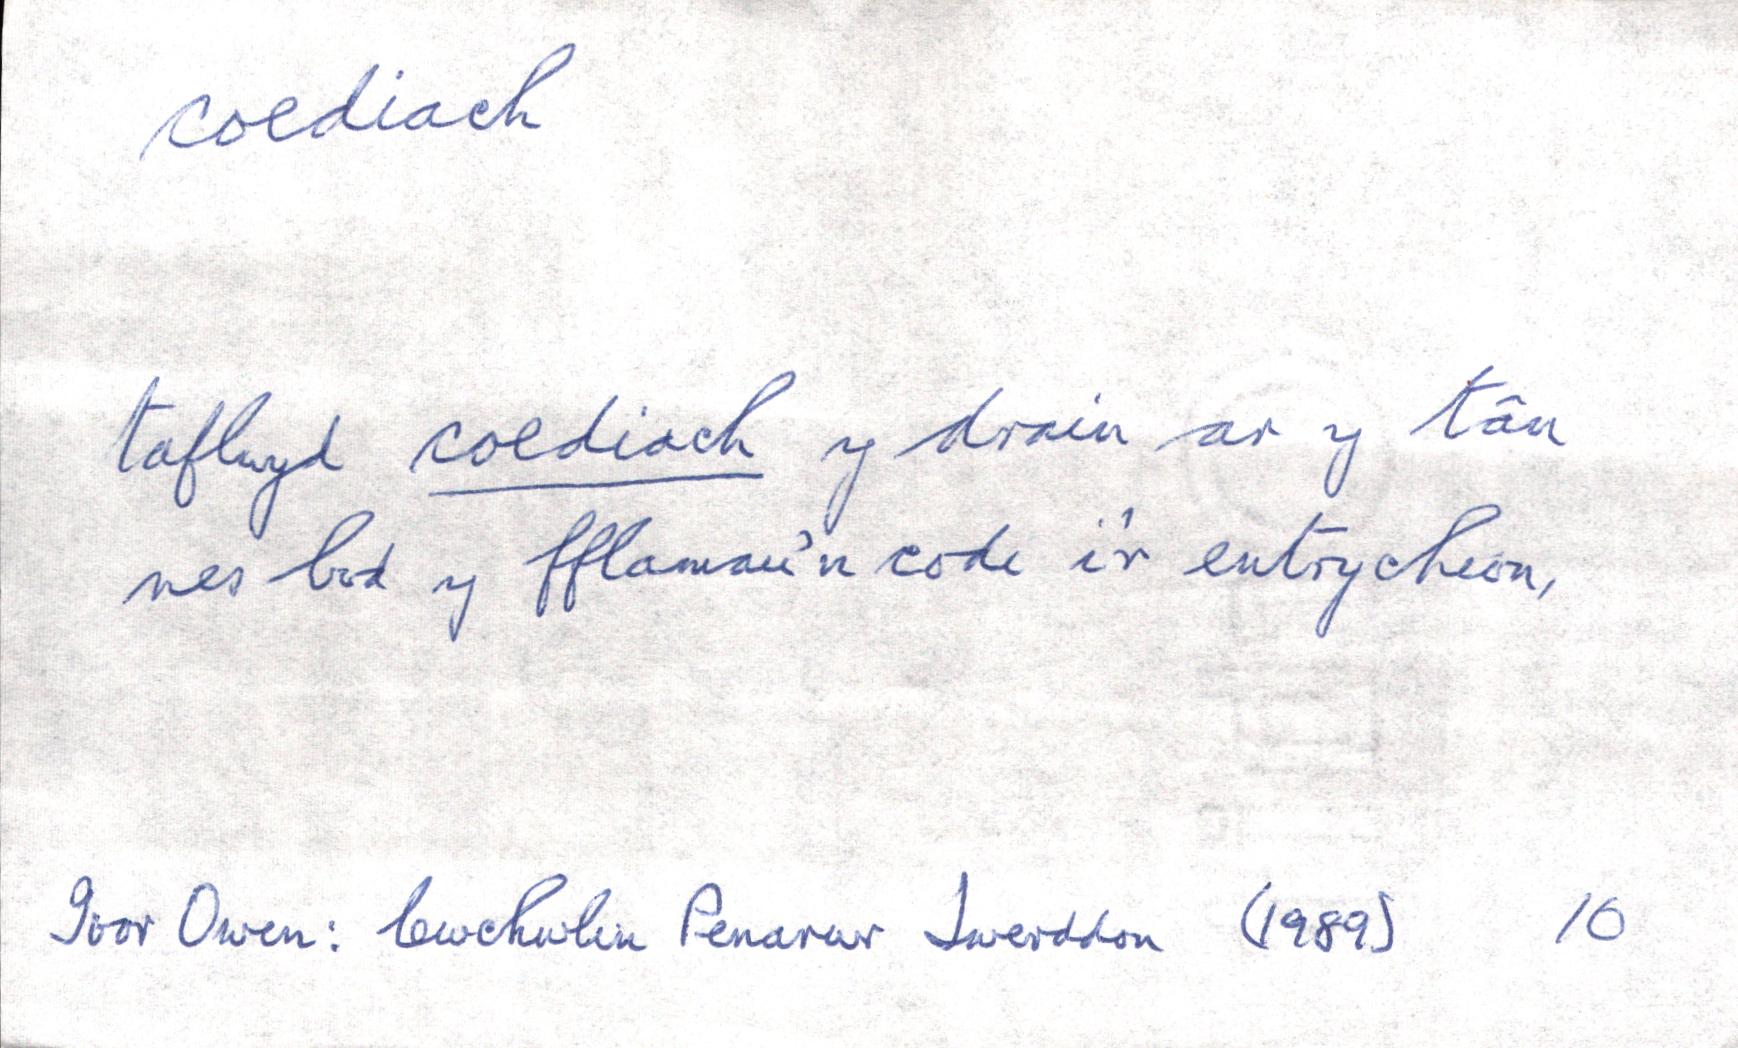 coediach
taflwyd coediach y drain ar y tân
nes bod y fflamau'n codi i'r entrychion,
Ivor Owen: Cwchwlin Penarwr Iwerddon (1989) 10